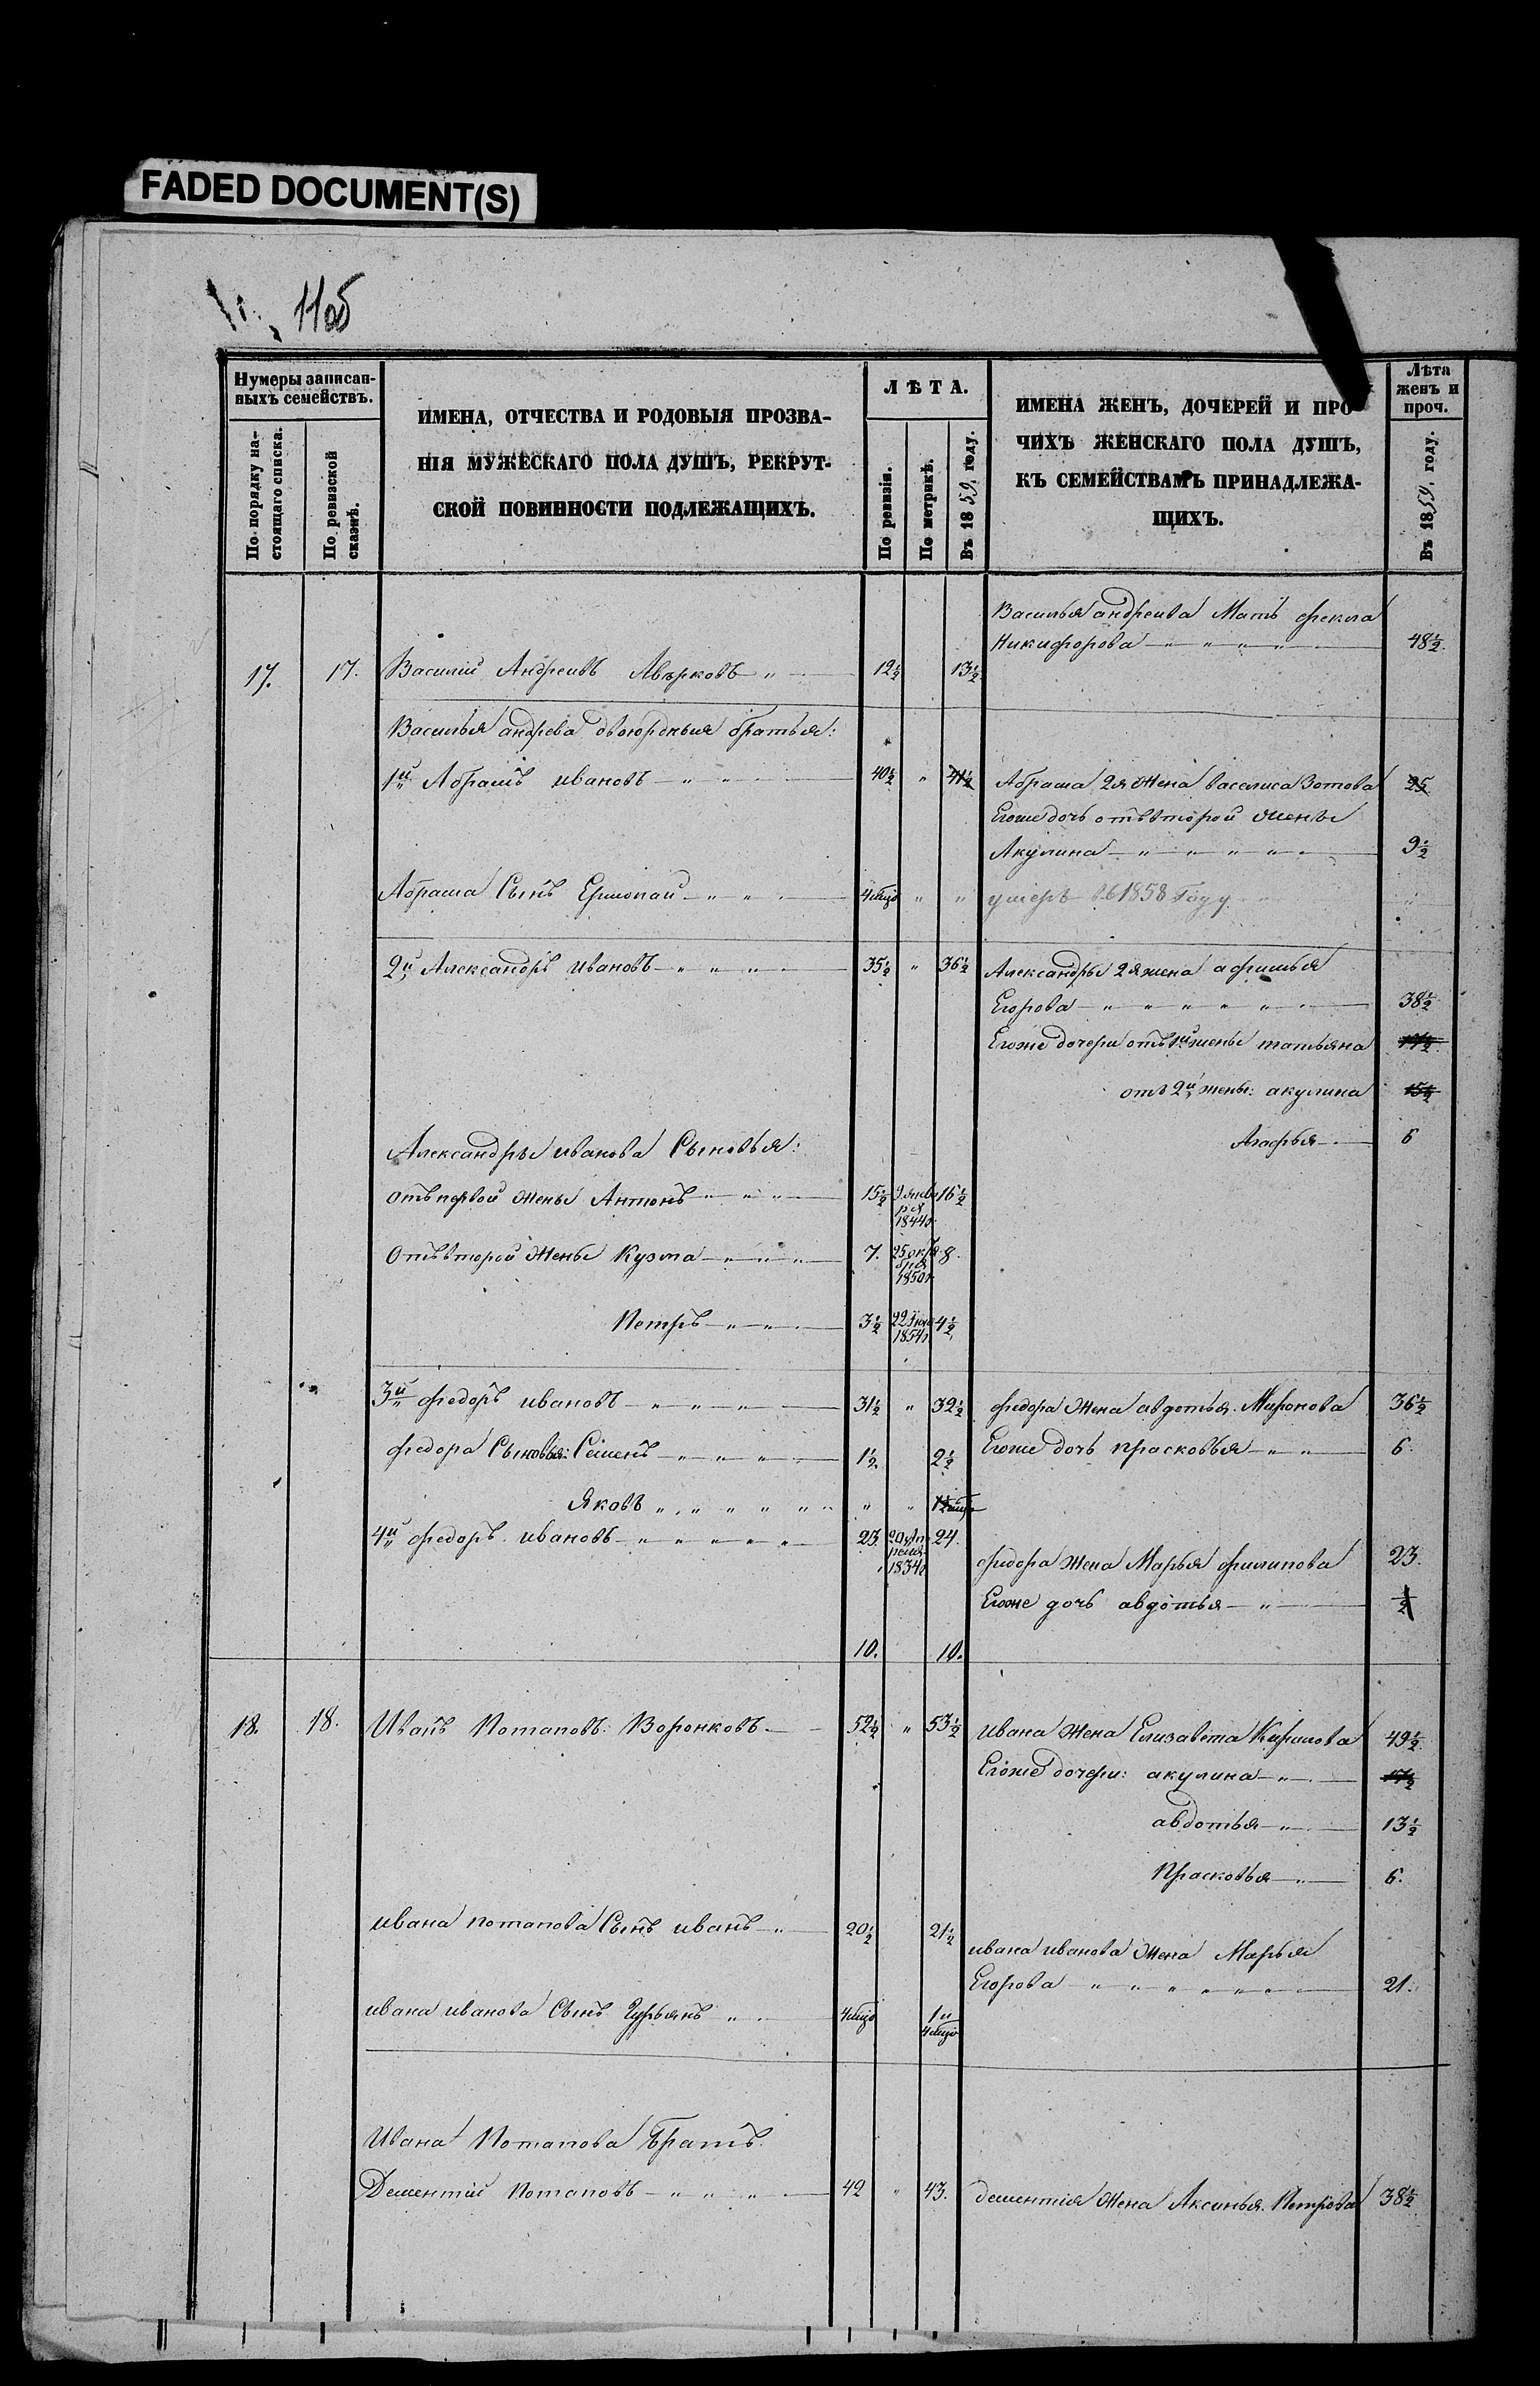 FADED DOCUMENT(S)
11об
Нумеры записан-
ныхъ семействъ.
По порядку на-
стоящаго списка.
По ревизской
сказкѣ.
ИМЕНА, ОТЧЕСТВА И РОДОВЫЯ ПРОЗВА-
НІЯ МУЖЕСКАГО ПОЛА ДУШЪ, РЕКРУТ-
СКОЙ ПОВИННОСТИ ПОДЛЕЖАЩИХЪ.
ЛѢТА.
По ревизіи.
По метрикѣ.
Въ 1859 году.
ИМЕНА ЖЕНЪ, ДОЧЕРЕЙ И ПРО-
ЧИХЪ ЖЕНСКАГО ПОЛА ДУШЪ,
КЪ СЕМЕЙСТВАМЪ ПРИНАДЛЕЖА-
ЩИХЪ.
Лѣта
женъ и
проч.
Въ 1859 году.
Василья андреива Мать фекла
Никифорова 48½
17. 17. Василий Андреивъ Аверковъ 12½ 13½
Василья андрева двоюродныя братья:
1й Абрамъ ивановъ 40½ " 41½ Абрама 2я жена василиса Зотова 25
Егоже дочь отъ второй жены
Акулина 9½
Абрама Сынъ Ермолай 4 мцо " " умеръ въ 1858 Году
2й Александръ ивановъ 35½ " 36½ Александры 2я жена афимья
Егорова 38½
Егоже дочери отъ 1й жены татьяна 17½
отъ 2й жены: акулина 15½
Агафья 6
Александры иванова Сыновья:
отъ первой жены Антонъ 15½ 9 янва 16½
ря
1844г.
Отъ второй жены Кузма 7. 25 октя 8.
бря
1850г.
Петръ 3½ 22 Июн 4½
1854г
3й федоръ ивановъ 31½ " 32½ федора жена авдотья Миронова 36½
федора Сыновья: Семенъ 1½ 2½ Егоже дочь прасковья 6.
Яковъ " "
4й федоръ ивановъ 23. 20 Ап 24.
реля
1834г
федора жена Марья филипова 23.
Егоже дочь авдотья ½
10. 10.
18. 18. Иванъ Потаповъ Воронковъ 52½ " 53½ ивана жена Елизавета Кирилова 49½
Егоже дочери: акулина 17½
авдотья 13½
Прасковья 6.
ивана потапова Сынъ иванъ 20½ 21½
ивана иванова жена Марья
Егорова 21.
ивана иванова Сынъ Гурьянъ 4 мцо 1 и
4 мцо
Ивана Потапова Братъ
Дементий Потаповъ 42 " 43. дементия жена Аксинья Петрова 38½